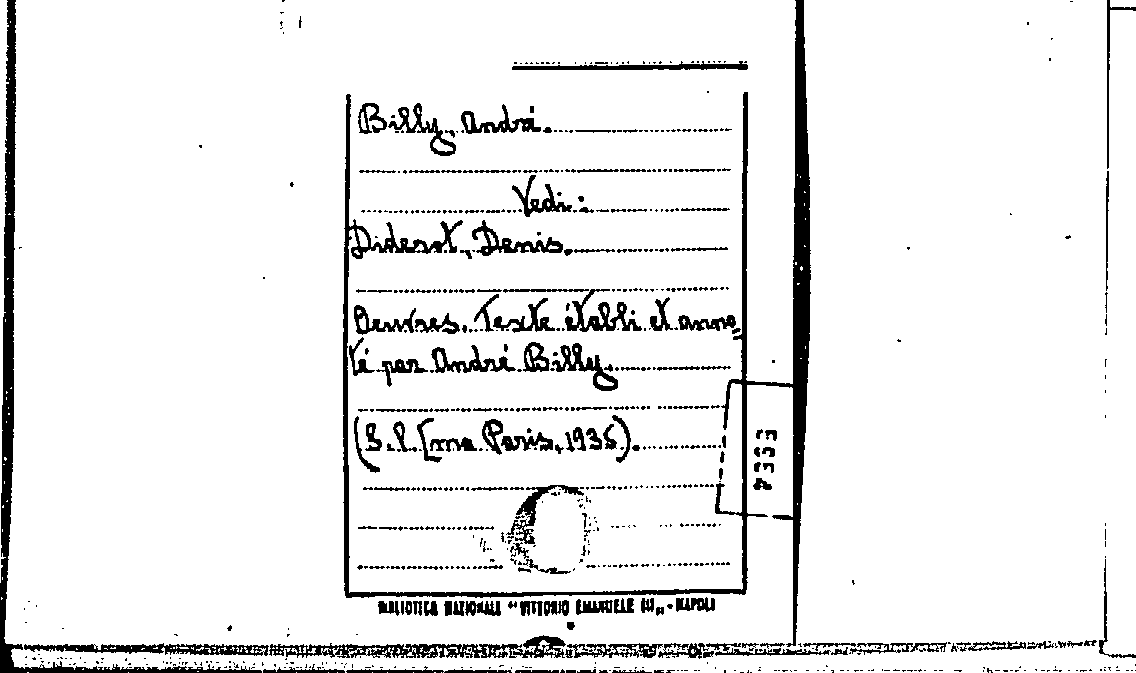 Billy, André.
Vedi:
Diderot, Denis.
Oeuvres. Texte établi et anno„
té par André Billy.
(S.l. [ma Paris, 1935).
BIBLIOTECA NAZIONALE “VITTORIO EMANUELE III„ - NAPOLI